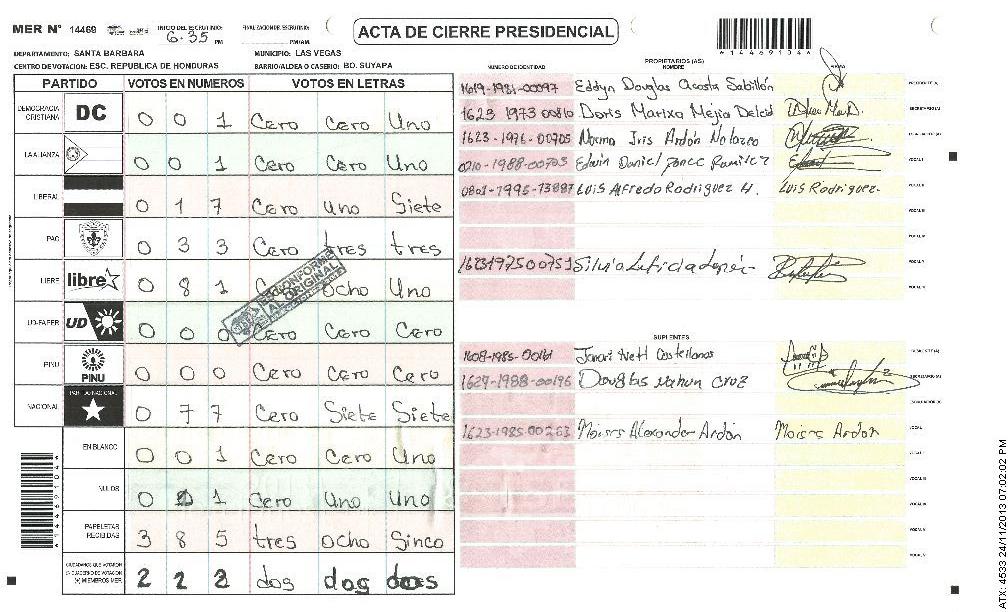 MER Nº 14469 INICIO DEL ESCRUTINIO: 6:35 PM FINALIZACION DE ESCRUTINIO: PM/AM
ACTA DE CIERRE PRESIDENCIAL
DEPARTAMENTO: SANTA BARBARA MUNICIPIO: LAS VEGAS
CENTRO DE VOTACION: ESC. REPUBLICA DE HONDURAS BARRIO/ALDEA O CASERIO: BO. SUYAPA
PARTIDO VOTOS EN NUMEROS VOTOS EN LETRAS
DEMOCRACIA CRISTIANA DC 0 0 1 Cero Cero Uno
LA ALIANZA 0 0 1 Cero Cero Uno
LIBERAL 0 1 7 Cero Uno Siete
PAC 0 3 3 Cero tres tres
LIBRE libre 0 8 1 Cero ocho Uno
ES CONFORME AL ORIGINAL
UD-FAPER UD 0 0 0 Cero Cero Cero
PINU PINU 0 0 0 Cero Cero Cero
NACIONAL PARTIDO NACIONAL 0 7 7 Cero Siete Siete
EN BLANCO 0 0 1 Cero Cero Uno
NULOS 0 1 1 Cero Uno Uno
PAPELETAS RECIBIDAS 3 8 5 tres ocho Sinco
CIUDADANOS QUE VOTARON EN CUADERNO DE VOTACION (+) MIEMBROS MER 2 2 2 dos dos dos
PROPIETARIOS (AS)
NUMERO DE IDENTIDAD NOMBRE FIRMA
1619-1981-00097 Eddyn Douglas Acosta Sabillón
1623 1973 00810 Doris Maritza Mejia Delcid
1623-1976-00705 Norma Iris Ardón
0210-1988-00703 Edwin Daniel Ponce Ramirez
0801-1995-13887 Luis Alfredo Rodriguez H. Luis Rodriguez.
1623197500751
SUPLENTES
1608-1985-00161 Castellanos
1627-1988-00196 Douglas Nahun Cruz
1623-1985-00263 Moises Alexander Ardón Moises Ardon
ATX: 4533 24/11/2013 07:02:02 PM